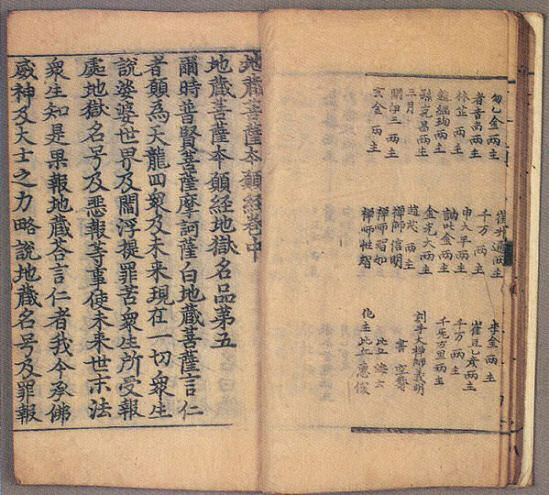 金兩主
兩主
林 兩主
兩主
兩主
三月
三兩主
玄金 兩主
兩主
千万 兩主
申大平兩主
兩主
金光大兩主
兩主
禪師信明
禪師智如
禪師性
李金兩主
兩主
千万 兩主
兩主
刻手大禪師義明
書
比丘
化主比丘惠俊
地藏菩薩夲願經卷中
地藏菩薩夲願經地獄名品第五
爾時普賢菩薩摩訶薩白地藏菩薩言仁
者願爲天龍四衆及未來現在一切衆生
說娑婆世界及閻浮提罪苦衆生所受報
處地獄名号及惡報等事使未來世末法
衆生知是果報地藏荅言仁者我今承佛
威神及大士之力略說地藏名号及罪報